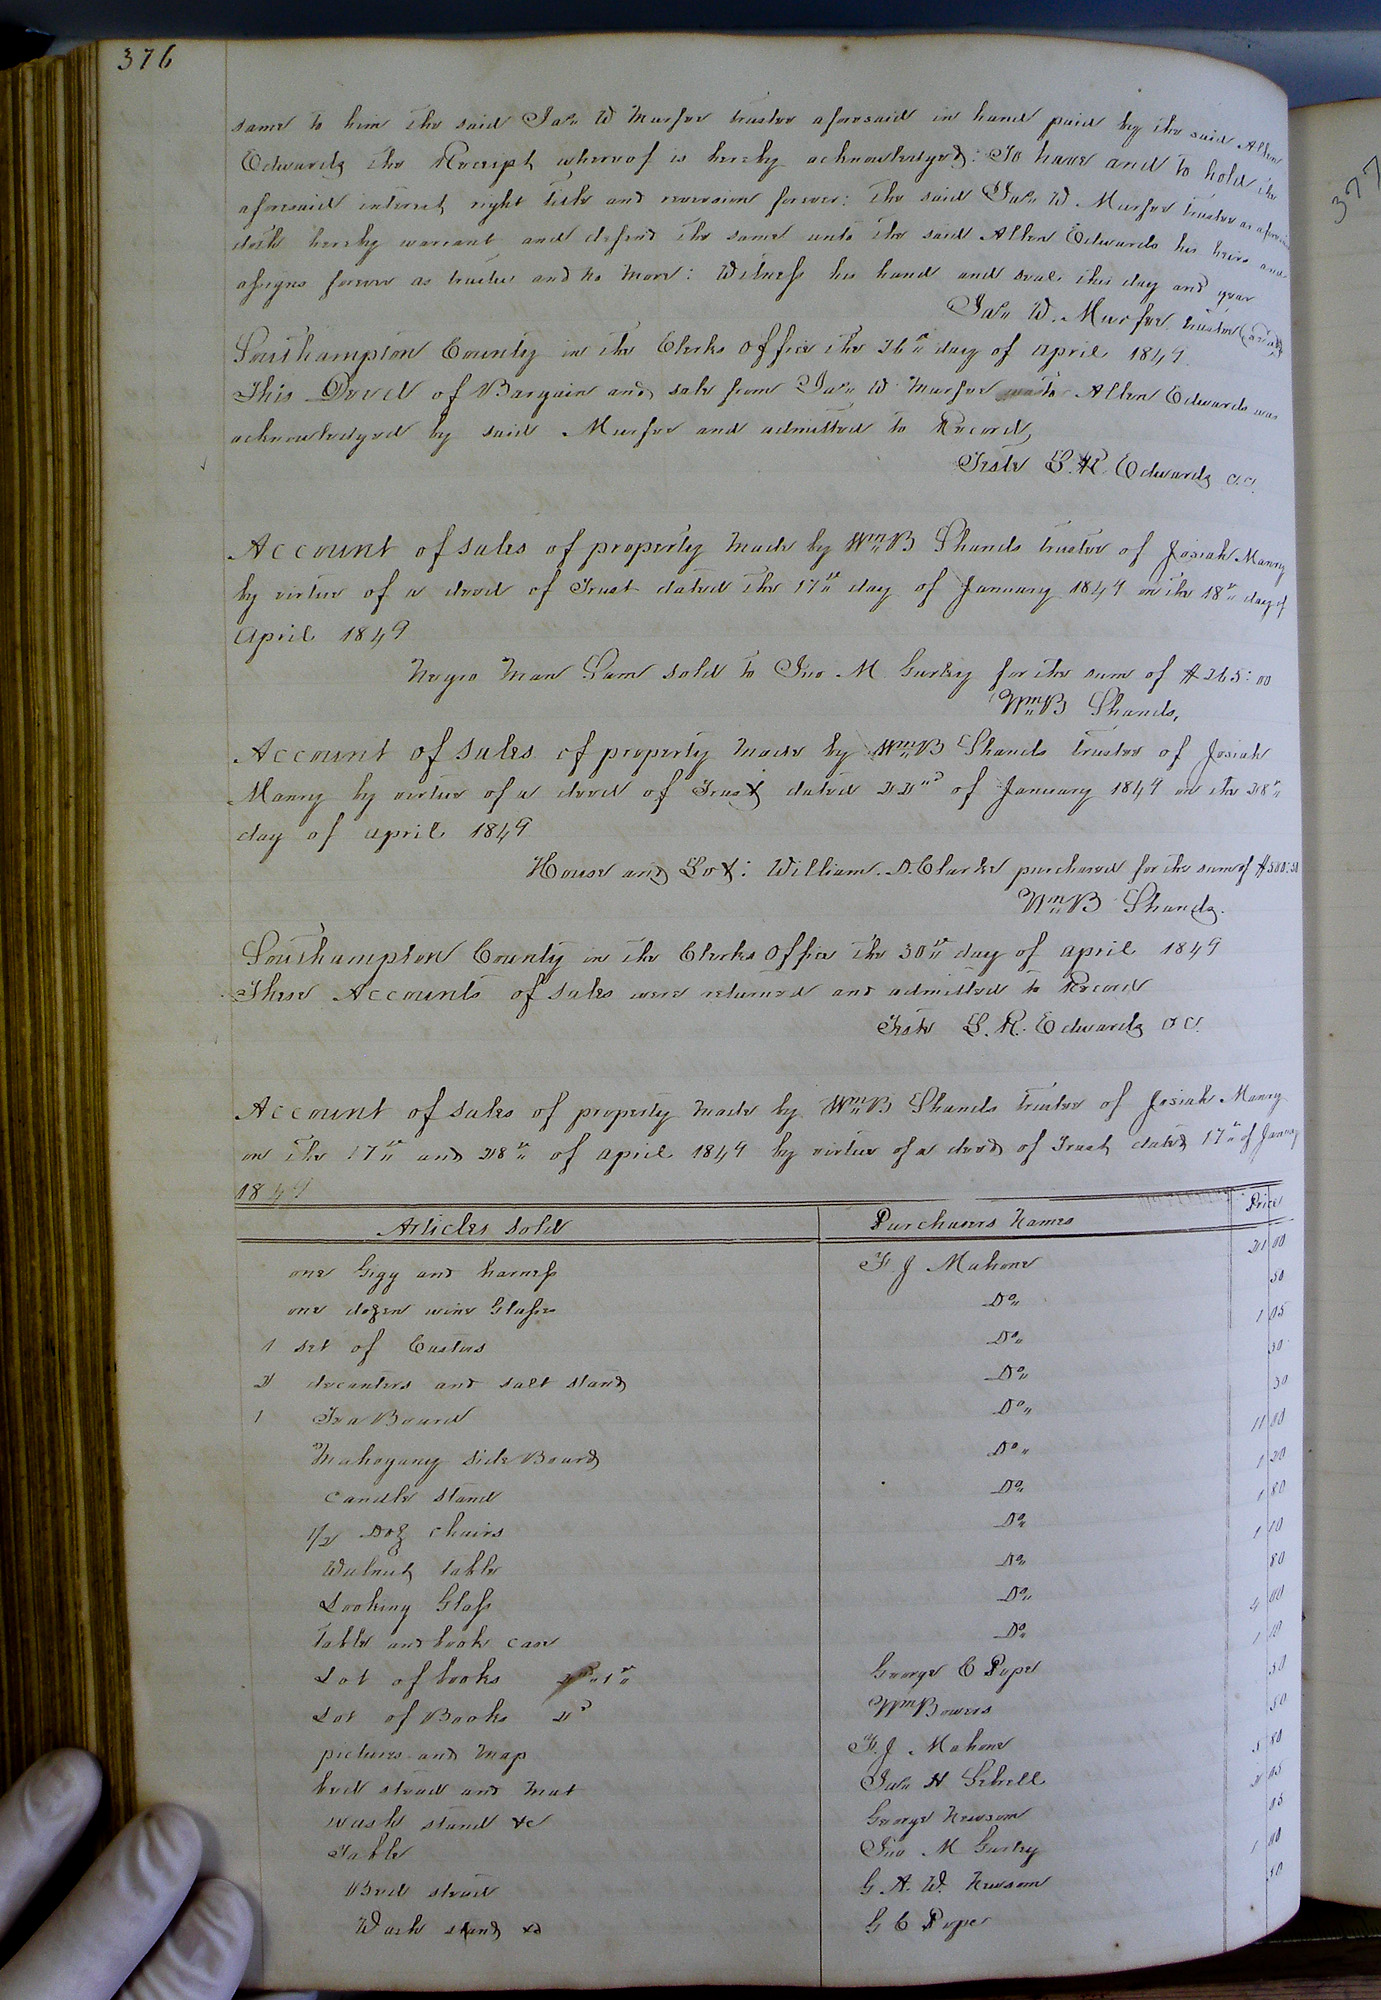 376
same to him the said Jas. W Murfee trustee aforesaid in hand paid by the said Allen
Edwards the Receipt whereof is hereby acknowledged: To have and to hold the
aforesaid interest right title and reversion forever: the said Jas. W Murfee trustee as aforesaid
doth hereby warrant and defend the same unto the said Allen Edwards his heirs and
assigns forever as trustee and no more: Witness his hand and seal this day and year
Jas. W. Murfee trustee (seal)
Southampton County in the Clerks office the 26th day of april 1849.
This Deed of Bargain and sale from Jas. W Murfee to Allen Edwards was
acknowledged by said Murfee and admitted to Record,
Teste L. R. Edwards C.C.
Account of sales of property made by Wm B Shands trustee of Josiah Manry
by virtue of a deed of Trust dated the 17th day of January 1849 on the 18th day of
April 1849
Negro Man Sam sold to Jno M Gurley for the sum of $265:00
Wm B Shands,
Account of sales of property made by Wm B Shands trustee of Josiah
Manry by virtue of a deed of Trust dated 22nd of January 1849 on the 28th
day of april 1849
House and Lot: William. D. Clarke purchased for the sum of
Wm B Shands.
Southampton County in the Clerks Office the 30th day of april 1849
These Accounts of sales were returned and admitted to Record
Teste L. R. Edwards CC.
Account of sales of property made by Wm B Shands trustee of Josiah Manry
on the 17th and 28th of april 1849 by virtue of a deed of Trust dated 17th of January
1849
Articles sold Purchasers Names Price
one Gigg and harness F. J Mahone 21 00
one dozen wine Glasses Do 50
1 set of Castors Do 1 05
2 decanters and salt stand Do 50
1 Tea Board Do 30
Mahogany side Board Do 11 00
candle stand Do 1 20
1/2 Doz chairs Do 1 80
Walnut table Do 1 10
Looking Glass Do 80
table and book case Do 4 00
Lot of books 1st George C Pope 50
Lot of Books 2d Wm Bowers 50
pictures and map F. J Mahone 80
bed stead and mat Jas. H Sebrell 2 05
wash stand &c George Newsom 05
Table Jno M Gurley 1 00
Bed stead G. A. W. Newsom 50
Wash stand &c G C Pope
377